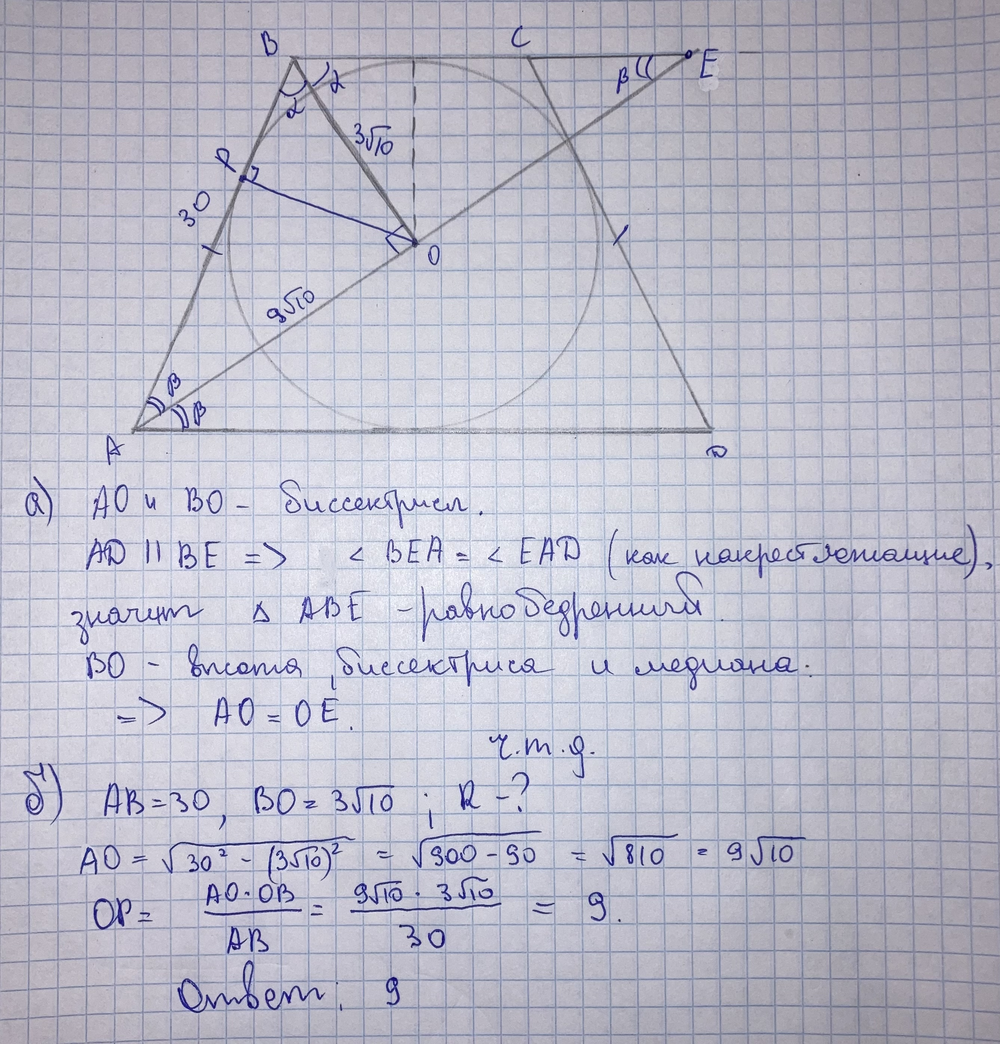 B C E
α α β
3√10
P
30
O
9√10
β β
A D
а) AO и BO - биссектрисы.
AD || BE => < BEA = < EAD (как накрест лежащие),
значит △ ABE - равнобедренный.
BO - высота, биссектриса и медиана.
=> AO = OE.
ч.т.д.
б) AB = 30, BO = 3√10 ; R - ?
AO = √30² - (3√10)² = √900 - 90 = √810 = 9√10
OP = AO · OB / AB = 9√10 · 3√10 / 30 = 9.
Ответ: 9